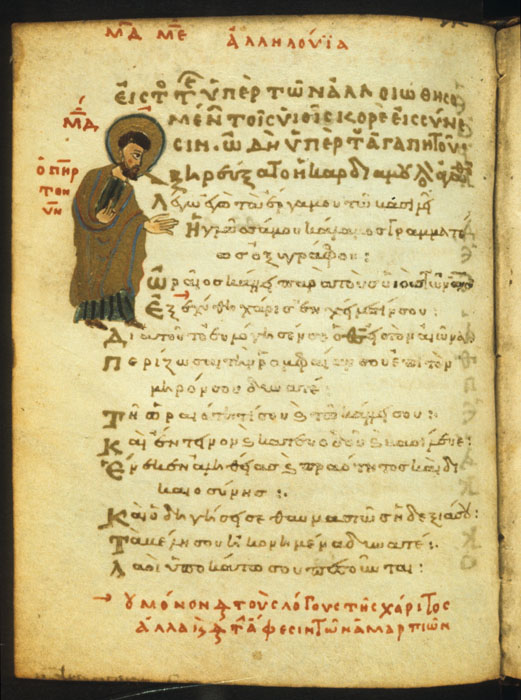 ΜΔ ΜΕ ἈΛΛΗΛΟΥΪΑ
ΕἸΣ Τὸ ΤΕ ὙΠῈΡ ΤΩΝ ἈΛΛΟΙΩΘΗΣΟ
ΜΈΝ ΤΟΙΣ ΥἹΟΙΣ ΚΟΡΕ ΕἸΣ ΣΎΝΕ
ΣΙΝ. ὨΔῊ ὙΠῈΡ Τ ἈΓΑΠΗΤΟΥ:
ΜΔ
ὁ πηρ
τὸν
υν
ξηρεύξατο ἡ καρδία μου
Λέγω ἐγὼ τὰ ἔργα μου τῷ βασιλεῖ
Ἡ γλῶσσά μου κάλαμος γραμματέ
ως ὀξυγράφου:
Ὡραῖος κάλλει παρὰ τοὺς υἱοὺς τῶν
Ἐξεχύθη χάρις ἐν χείλεσί σου:
Διὰ τοῦτο εὐλόγησέν σε ὁ θς εἰς τὸν αἰῶνα
Περίζωσαι τὴν ῥομφαίαν σου ἐπὶ τὸν
μηρόν σου δυνατέ:
Τῇ ὡραιότητί σου ϗ τῷ κάλλει σου:
Καὶ ἔντεινον ϗ κατευοδοῦ ϗ βασίλευε:
Ἕνεκεν ἀληθείας ϗ πραότητος καὶ δι
καιοσύνης:.
Καὶ ὁδηγήσει σε θαυμαστῶς ἡ δεξιά σου:
Τὰ βέλη σου ἠκονημένα δυνατέ:
Λαοὶ ὑποκάτω σου πεσοῦνται:
→ οὐ μόνον τοὺς λόγους τῆς χάριτος
ἀλλὰ ἄφεσιν τῶν ἁμαρτιῶν